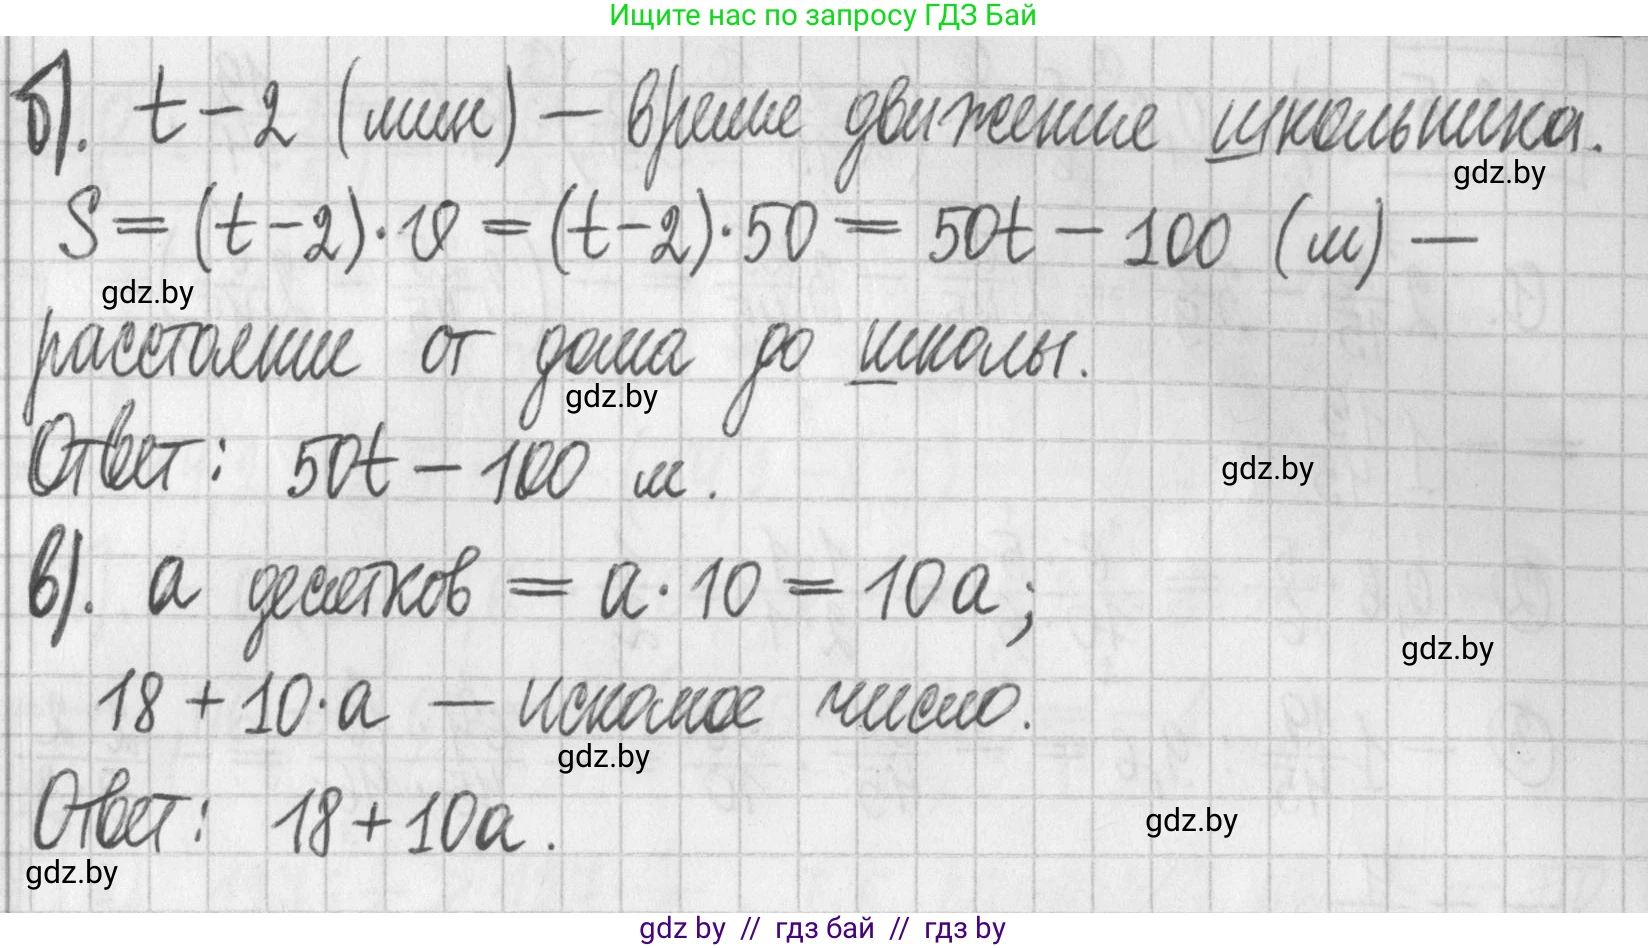 Ищите нас по запросу ГДЗ Бай
б). t - 2 (мин) — время движения школьника.
gdz.by
S = (t - 2) · 18 = (t - 2) · 50 = 50t - 100 (м) —
gdz.by
расстояние от дома до школы.
gdz.by
Ответ: 50t - 100 м.
gdz.by
в). а десятков = а · 10 = 10а;
gdz.by
18 + 10 · а — искомое число.
gdz.by
Ответ: 18 + 10а.
gdz.by
gdz.by
gdz by // гдз бай // гдз by